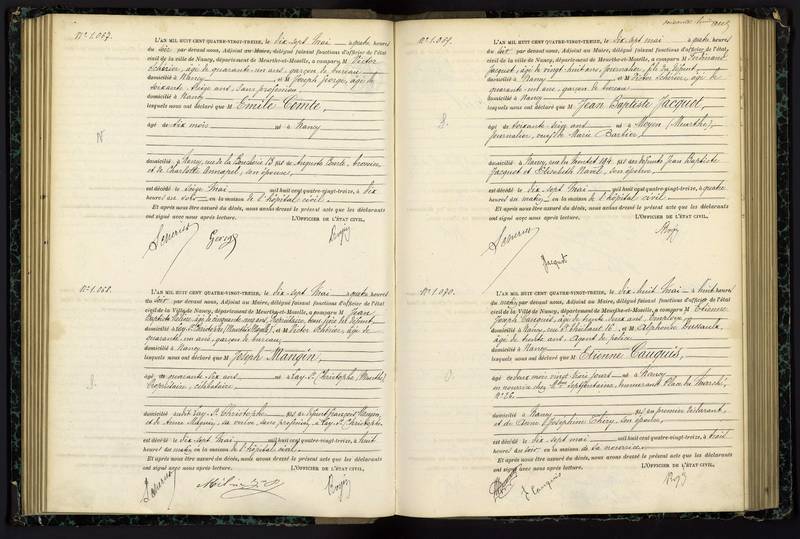 N° 1.067.
L'AN MIL HUIT CENT QUATRE-VINGT-TREIZE, le Dix-sept Mai à quatre heures
du soir par devant nous, Adjoint au Maire, délégué faisant fonctions d'officier de l'état
civil de la ville de Nancy, département de Meurthe-et-Moselle, a comparu M Victor
âgé de quarante un ans, garçon de bureau
domicilié à Nancy et M Joseph George, âgé de
soixante ans, sans profession
domicilié à Nancy
lesquels nous ont déclaré que M Emile Comte,
N
âgé de six mois né à Nancy
domicilié à Nancy, rue de la Boucherie 13 fils de Auguste Comte,
et de Charlotte son épouse,
est décédé le seize Mai mil huit cent quatre-vingt-treize, à six
heures du soir en la maison de l'hôpital civil.
Et après nous être assuré du décès, nous avons dressé le présent acte que les déclarants
ont signé avec nous après lecture. L'OFFICIER DE L'ÉTAT CIVIL,
George
N° 1.068.
L'AN MIL HUIT CENT QUATRE-VINGT-TREIZE, le dix-sept Mai à quatre heures
du soir par devant nous, Adjoint au Maire, délégué faisant fonctions d'officier de l'état
civil de la Ville de Nancy, département de Meurthe-et-Moselle, a comparu M Jean
Baptiste âgé de cinquante ans, propriétaire,
domicilié à Lay-St-Christophe (Meurthe & Moselle) et M Victor âgé de
quarante un ans, garçon de bureau
domicilié à Nancy
lesquels nous ont déclaré que M Joseph Mangin,
âgé de quarante six ans né à Lay-St-Christophe, (Meurthe)
propriétaire, célibataire
domicilié audit Lay-St-Christophe fils de défunt François Mangin,
et de Anne sa veuve, sans profession, à Lay-St-Christophe
est décédé le dix-sept Mai mil huit cent quatre-vingt-treize, à huit
heures du matin en la maison de l'hôpital civil.
Et après nous être assuré du décès, nous avons dressé le présent acte que les déclarants
ont signé avec nous après lecture. L'OFFICIER DE L'ÉTAT CIVIL,
N° 1.069.
L'AN MIL HUIT CENT QUATRE-VINGT-TREIZE, le Dix-sept mai à quatre heures
du soir par devant nous, Adjoint au Maire, délégué faisant fonctions d'officier de l'état
civil de la ville de Nancy, département de Meurthe-et-Moselle, a comparu M Ferdinand
Jacquot, âgé de vingt-huit ans, journalier, fils du défunt
domicilié à Nancy et M Victor âgé de
quarante-un ans, garçon de bureau
domicilié à Nancy
lesquels nous ont déclaré que M Jean Baptiste Jacquot,
âgé de soixante ans né à Moyen (Meurthe),
journalier, veuf de Marie Barbier,
domicilié à Nancy, rue fils des défunts Jean Baptiste
Jacquot et Elisabeth son épouse,
est décédé le dix-sept Mai mil huit cent quatre-vingt-treize, à quatre
heures du matin en la maison de l'hôpital civil.
Et après nous être assuré du décès, nous avons dressé le présent acte que les déclarants
ont signé avec nous après lecture. L'OFFICIER DE L'ÉTAT CIVIL,
Jacquot
N° 1.070.
L'AN MIL HUIT CENT QUATRE-VINGT-TREIZE, le dix-huit Mai à huit heures
du matin par devant nous, Adjoint au Maire, délégué faisant fonctions d'officier de l'état
civil de la ville de Nancy, département de Meurthe-et-Moselle, a comparu M Etienne
Joseph Cauquis, âgé de trente deux ans, employé
domicilié à Nancy, rue 16 et M Alphonse
âgé de trente ans, agent de police
domicilié à Nancy
lesquels nous ont déclaré que M Etienne Cauquis,
âgé de deux mois vingt-trois jours né à Nancy
en nourrice chez Mme Septfontaine, demeurant Place du Marché,
N° 26.
domicilié à Nancy fils du premier déclarant
et de Dame Joséphine Thiry, son épouse,
est décédé le dix-sept mai mil huit cent quatre-vingt-treize, à trois
heures du soir en la maison de la nourrice
Et après nous être assuré du décès, nous avons dressé le présent acte que les déclarants
ont signé avec nous après lecture. L'OFFICIER DE L'ÉTAT CIVIL,
J. Cauquis